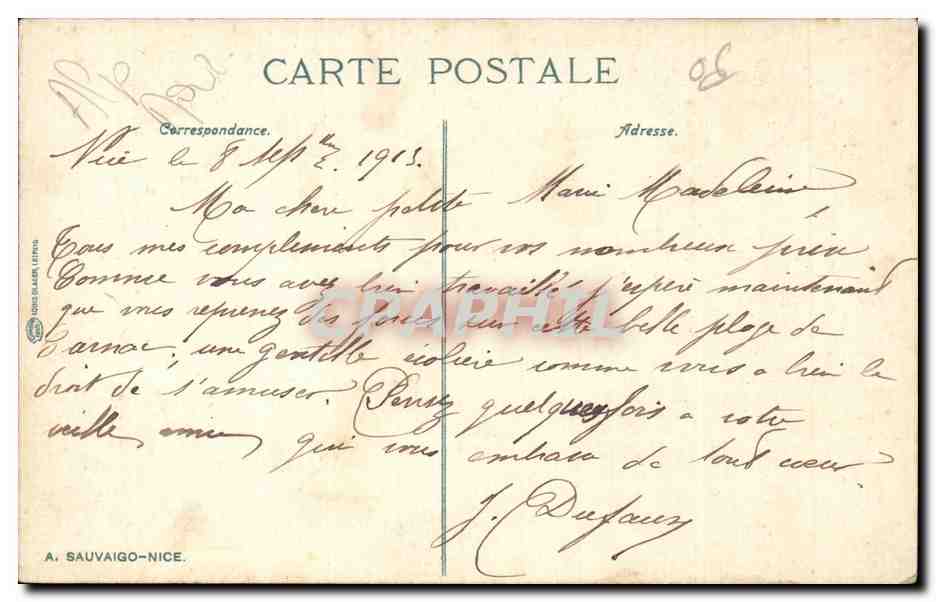 CARTE POSTALE
06
Correspondance.
Adresse.
Nice le 8 sept bre 1913.
Ma chere petite Marie Madeleine
Tous mes compliments pour vos nombreux prix
Comme vous avez bien travaillé, j'espère maintenant
que vous reprenez des forces sur cette belle plage de
Carnac; une gentille écolière comme vous a bien le
droit de s'amuser. Pensez quelquesfois a votre
vieille amie qui vous embrasse de tout coeur
J. Dufaux
CPAPHIL
LOUIS GLASER, LEIPZIG
A. SAUVAIGO-NICE.